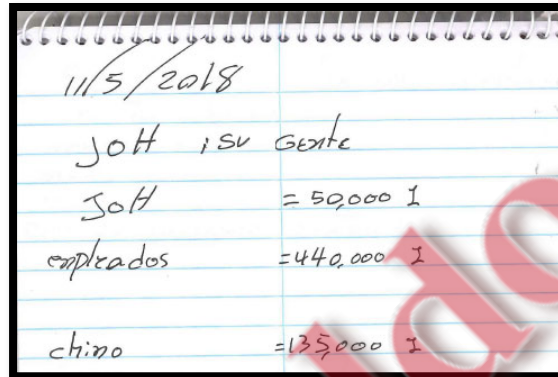 11/5/2018
JOH i su Gente
JOH = 50,000 I
empleados = 440,000 I
chino = 135,000 I